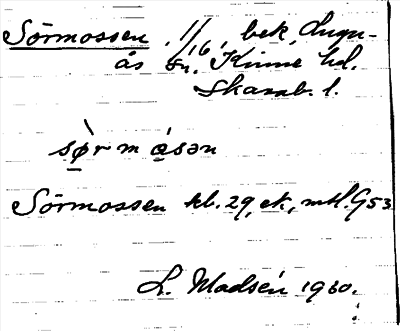 Sörmossen 1/16, bek, Lugn-
ås sn. Kinne hd.
Skarab. l.
sòrmásən
Sörmossen kb. 29, ek, mtl. G53
L. Madsén 1930.